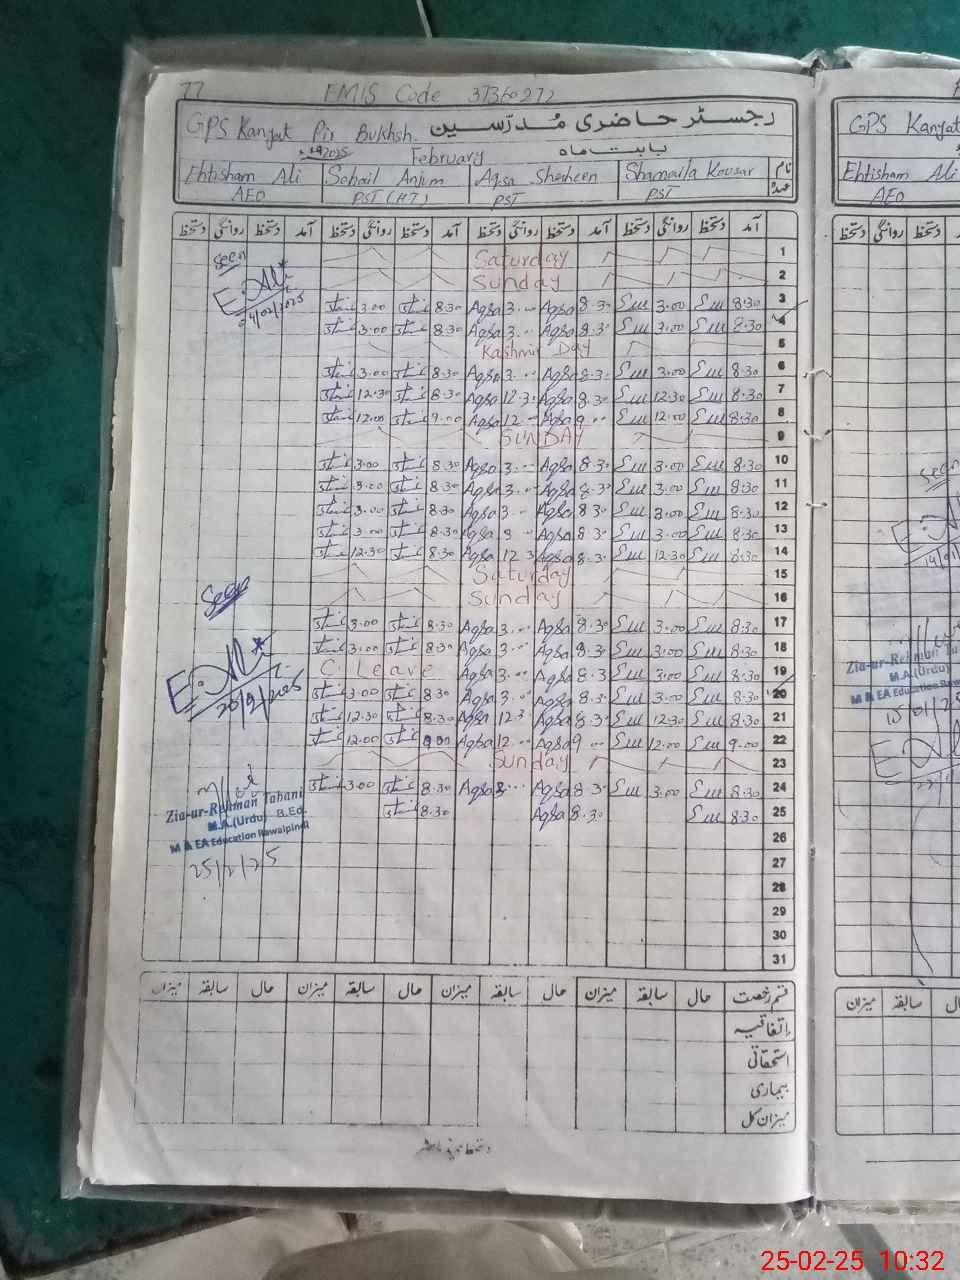 77 EMIS Code 37360272
GPS Kanjat Pir Bukhsh. رجسٹر حاضری مدرسین
2025 February بابت ماہ
Ehtisham Ali Sohail Anjum Aqsa Shaheen Shamaila Kousar نام
AEO PST (HT) PST PST عہدہ
دستخط روانگی دستخط آمد دستخط روانگی دستخط آمد دستخط روانگی دستخط آمد دستخط روانگی دستخط آمد
Seen Saturday 1
Sunday 2
04/02/2025 3.00 8.30 Aqsa 3.00 Aqsa 8.30 3.00 8.30 3
3.00 8.30 Aqsa 3.00 Aqsa 8.30 3.00 8.30 4
Kashmir Day 5
3.00 8.30 Aqsa 3.00 Aqsa 8.30 3.00 8.30 6
12.30 8.30 Aqsa 12.30 Aqsa 8.30 12.30 8.30 7
12.00 9.00 Aqsa 12.00 Aqsa 9.00 12.00 8.30 8
SUNDAY 9
3.00 8.30 Aqsa 3.00 Aqsa 8.30 3.00 8.30 10
3.00 8.30 Aqsa 3.00 Aqsa 8.30 3.00 8.30 11
3.00 8.30 Aqsa 3.00 Aqsa 8.30 3.00 8.30 12
3.00 8.30 Aqsa 3.00 Aqsa 8.30 3.00 8.30 13
12.30 8.30 Aqsa 12.30 Aqsa 8.30 12.30 8.30 14
Saturday 15
Seen Sunday 16
3.00 8.30 Aqsa 3.00 Aqsa 8.30 3.00 8.30 17
3.00 8.30 Aqsa 3.00 Aqsa 8.30 3.00 8.30 18
C. Leave Aqsa 3.00 Aqsa 8.30 3.00 8.30 19
20/2/2025 3.00 8.30 Aqsa 3.00 Aqsa 8.30 3.00 8.30 20
12.30 8.30 Aqsa 12.30 Aqsa 8.30 12.30 8.30 21
12.00 9.00 Aqsa 12.00 Aqsa 9.00 12.00 9.00 22
Sunday 23
3.00 8.30 Aqsa 3.00 Aqsa 8.30 3.00 8.30 24
8.30 Aqsa 8.30 8.30 25
Zia-ur-Rehman Tabani
M.A.(Urdu) B.Ed.
M & EA Education Rawalpindi
25/2/25
26
27
28
29
30
31
میزان سابقہ حال میزان سابقہ حال میزان سابقہ حال میزان سابقہ حال قسم رخصت
اتفاقیہ
استحقاقی
بیماری
میزان کل
GPS Kanjat
Ehtisham Ali
AEO
دستخط روانگی دستخط
Seen
Zia-ur-Rehman Ta
M.A.(Urdu)
M & EA Education Rawa
15/01/25
میزان سابقہ حال
25-02-25 10:32